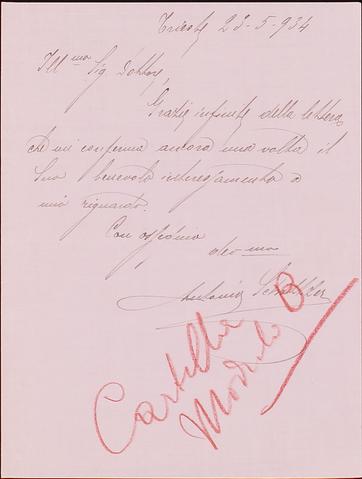 Trieste 23-5-934
Ill mo Sig. Dottore,
Grazie infinite della lettera
che mi conferma ancora una volta il
Suo benevolo interessamento a
mio riguardo.
Con
dev mo
Antonio
Cartella
Modulo B